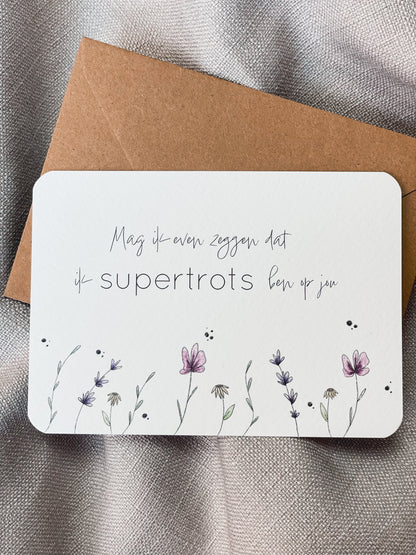 Mag ik even zeggen dat
ik supertrots ben op jou